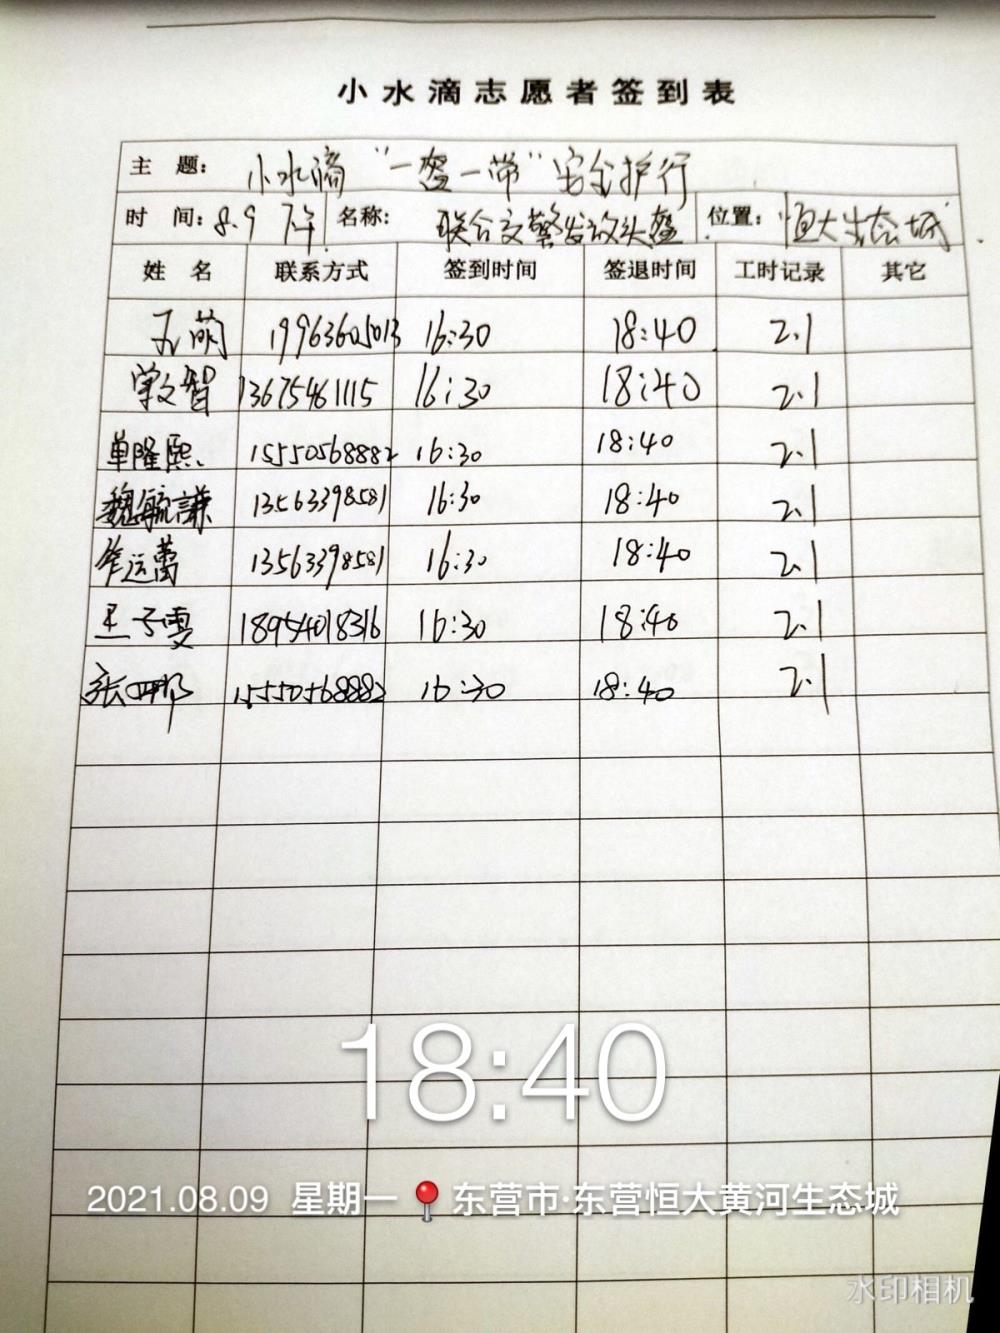 小水滴志愿者签到表
主 题: 小水滴“一盔一带”安全护行
时 间: 8.9 下午 名称: 联合交警发放头盔 位置: 恒大生态城
姓 名 联系方式 签到时间 签退时间 工时记录 其它
萌 19963605013 16:30 18:40 2.1
文智 13675461115 16:30 18:40 2.1
单隆熙 15550568882 16:30 18:40 2.1
魏毓謙 13563398581 16:30 18:40 2.1
运蕾 13563398581 16:30 18:40 2.1
王子雯 18954018316 16:30 18:40 2.1
张 15550568882 16:30 18:40 2.1
18:40
2021.08.09 星期一 东营市·东营恒大黄河生态城
水印相机